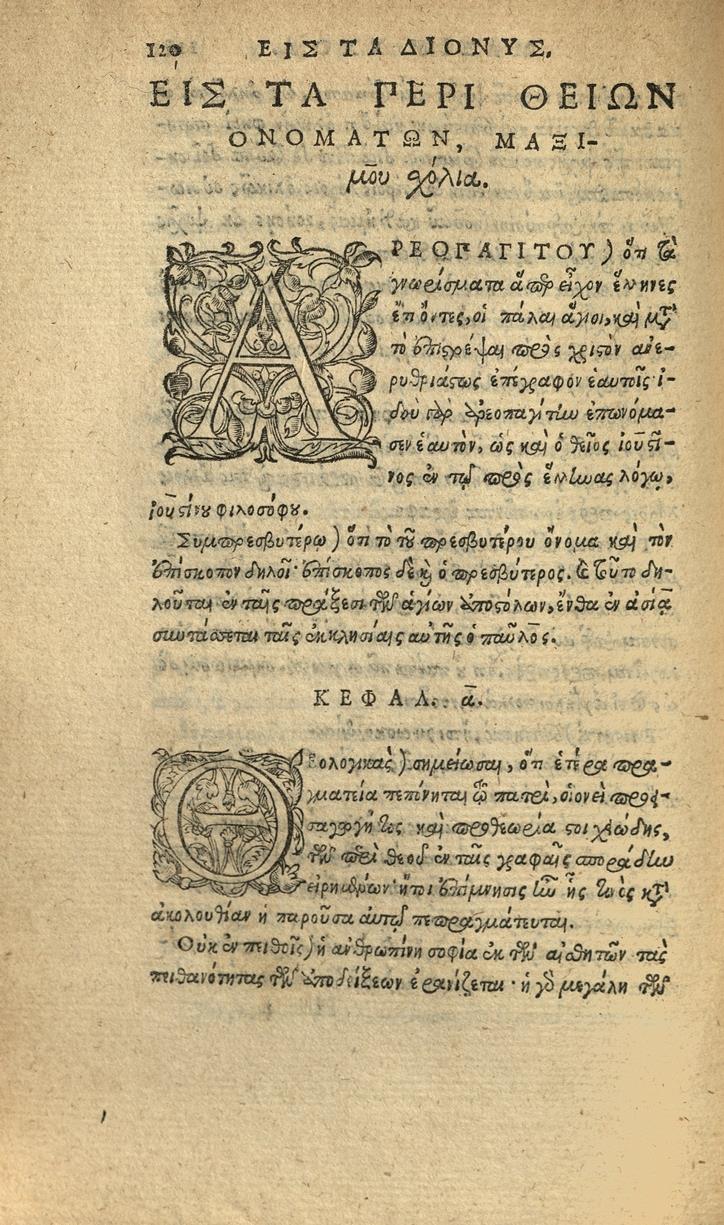 120 ΕΙΣ ΤΑ ΔΙΟΝΥΣ.
ΕΙΣ ΤΑ ΠΕΡΙ ΘΕΙΩΝ
ΟΝΟΜΑΤΩΝ, ΜΑΞΙ-
μου σχόλια.
ΑΡΕΟΠΑΓΙΤΟΥ) ὅτι τὰ
γνωρίσματα ἅπερ εἶχον ἕλληνες
ἔτι ὄντες, οἱ πάλαι ἅγιοι, καὶ μετὰ
τὸ ἐπιστρέψαι πρὸς χριστὸν ἀνε-
ρυθριάστως ἐπέγραφον ἑαυτοῖς· ἰ-
δοὺ γὰρ ἀρεοπαγίτην ἐπωνόμα-
σεν ἑαυτὸν, ὡς καὶ ὁ θεῖος ἰουστῖ-
νος ἐν τῷ πρὸς ἕλληνας λόγῳ,
ἰουστίνου φιλοσόφου.
Συμπρεσβυτέρῳ) ὅτι τὸ τοῦ πρεσβυτέρου ὄνομα καὶ τὸν
ἐπίσκοπον δηλοῖ· ἐπίσκοπος δὲ καὶ ὁ πρεσβύτερος. καὶ τοῦτο δη-
λοῦται ἐν ταῖς πράξεσι τῶν ἁγίων ἀποστόλων, ἔνθα ἐν ἀσίᾳ
συντάσσεται ταῖς ἐκκλησίαις αὐτῆς ὁ παῦλος.
ΚΕΦΑΛ. α.
Θεολογικὰς) σημείωσαι, ὅτι ἑτέρα πρα-
γματεία πεπόνηται τῷ πατρὶ, οἱονεὶ προς-
αγωγή τις καὶ προθεωρία στοιχιώδης,
τῶν περὶ θεοῦ ἐν ταῖς γραφαῖς σποράδην
εἰρημένων· ἤτοι ἐπίμνησις
ἀκολουθίαν ἡ παροῦσα αὐτῷ πεπραγμάτευται.
Οὐκ ἐν πειθοῖς) ἡ ἀνθρωπίνη σοφία ἐκ τῶν αἰσθητῶν τὰς
πιθανότητας τῶν ἀποδείξεων ἐρανίζεται· ἡ γὰρ μεγάλη τῶν